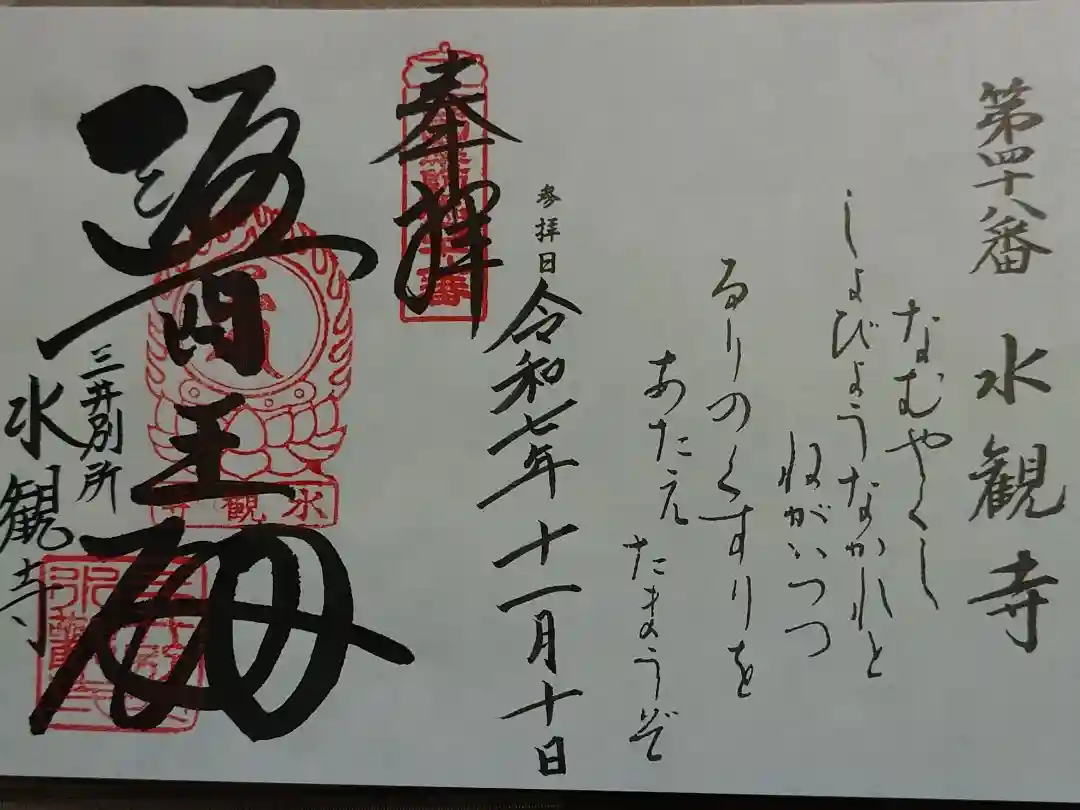 第四十八番 水観寺
なむやくし
しょびょうなかれと
ねがいつつ
るりのくすりを
あたえ たまうぞ
参拝日 令和七年十一月十日
奉拝
醫王
三井別所
水観寺
水観寺